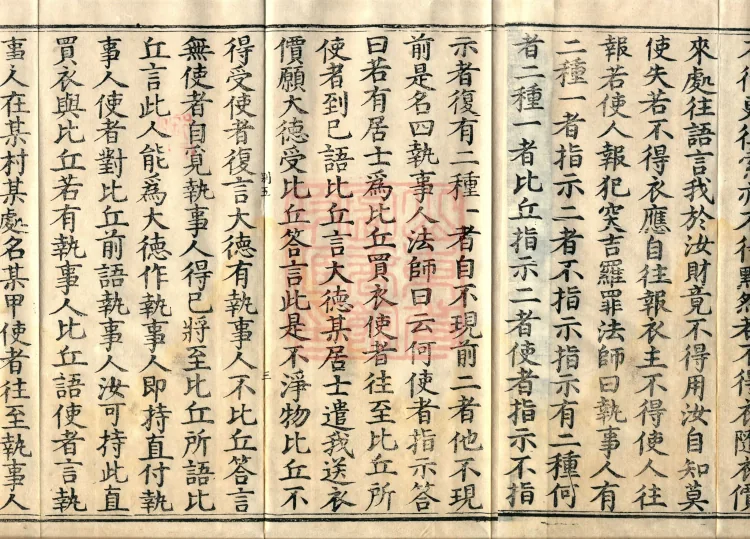 來處往語言我於汝財竟不得用汝自知莫
使失若不得衣應自往報衣主不得使人往
報若使人報犯突吉羅罪法師曰執事人有
二種一者指示二者不指示指示有二種何
者二種一者比丘指示二者使者指示不指
示者復有二種一者自不現前二者他不現
前是名四執事人法師曰云何使者指示答
曰若有居士爲比丘買衣使者往至比丘所
使者到已語比丘言大德某居士遣我送衣
價願大德受比丘答言此是不淨物比丘不
三
得受使者復言大德有執事人不比丘答言
無使者自覓執事人得已將至比丘所語比
丘言此人能爲大德作執事人即持直付執
事人使者對比丘前語執事人汝可持此直
買衣與比丘若有執事人比丘語使者言執
事人在某村某處名某甲使者往至執事人